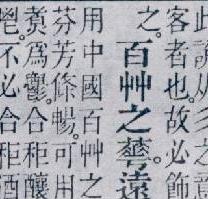 之意
客者也。故必飾
之。百艸之蕐遠
用中國百艸之
芬芳條暢。可用
煑爲鬱。合秬釀
鬯。不必合秬酒